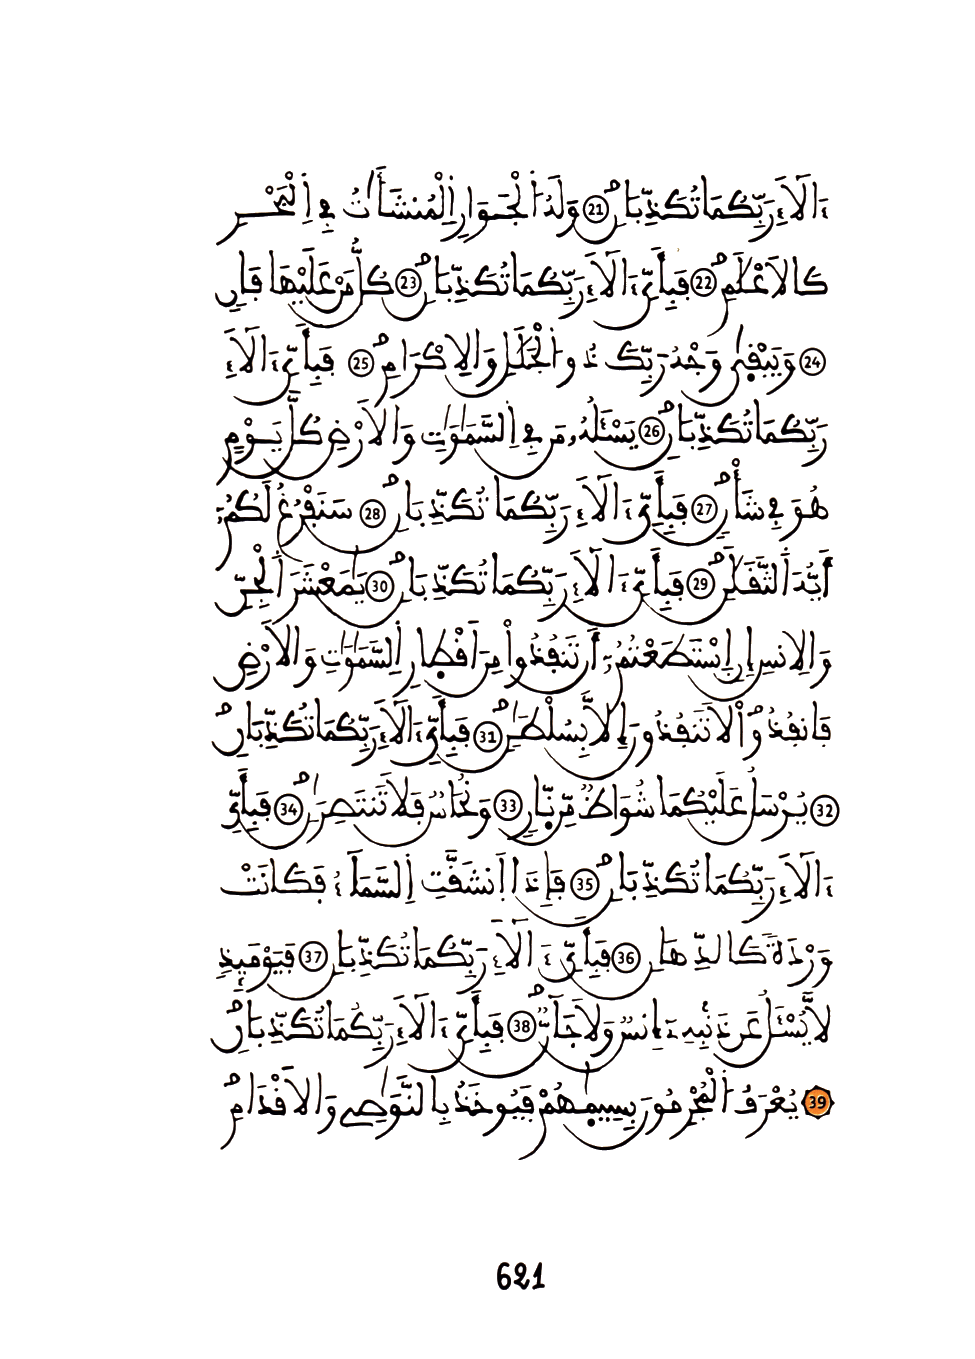 ءَالَآءِ رَبِّكُمَا تُكَذِّبَٰنِ 21 وَلَهُ الْجَوَارِ الْمُنشَـَٔاتُ فِے اِلْبَحْرِ
كَالَاعْلَٰمِ 22 فَبِأَيِّ ءَالَآءِ رَبِّكُمَا تُكَذِّبَٰنِ 23 كُلُّ مَنْ عَلَيْهَا فَانٖ
24 وَيَبْقَىٰ وَجْهُ رَبِّكَ ذُو الْجَلَٰلِ وَالِاكْرَامِ 25 فَبِأَيِّ ءَالَآءِ
رَبِّكُمَا تُكَذِّبَٰنِ 26 يَسْـَٔلُهُۥ مَن فِے اِلسَّمَٰوَٰتِ وَالَارْضِ كُلَّ يَوْمٍ
هُوَ فِے شَأْنٖ 27 فَبِأَيِّ ءَالَآءِ رَبِّكُمَا تُكَذِّبَٰنِ 28 سَنَفْرُغُ لَكُمُۥٓ
أَيُّهَ اَلثَّقَلَٰنِ 29 فَبِأَيِّ ءَالَآءِ رَبِّكُمَا تُكَذِّبَٰنِ 30 يَٰمَعْشَرَ اَلْجِنِّ
وَالِانسِ إِنِ اِسْتَطَعْتُمُۥٓ أَن تَنفُذُواْ مِنَ اَقْطِارِ اِلسَّمَٰوَٰتِ وَالَارْضِ
فَانفُذُواْ لَا تَنفُذُونَ إِلَّا بِسُلْطَٰنٖ 31 فَبِأَيِّ ءَالَآءِ رَبِّكُمَا تُكَذِّبَٰنِ
32 يُرْسَلُ عَلَيْكُمَا شُوَاظٞ مِّن نّ۪ارٖ 33 وَنُحَاسٞ فَلَا تَنتَصِرَٰنِ 34 فَبِأَيِّ
ءَالَآءِ رَبِّكُمَا تُكَذِّبَٰنِ 35 فَإِذَا اَنشَقَّتِ اِلسَّمَآءُ فَكَانَتْ
وَرْدَةٗ كَالدِّهَانِ 36 فَبِأَيِّ ءَالَآءِ رَبِّكُمَا تُكَذِّبَٰنِ 37 فَيَوْمَئِذٖ
لَّا يُسْـَٔلُ عَن ذَنۢبِهِۦٓ إِنسٞ وَلَا جَآنّٞ 38 فَبِأَيِّ ءَالَآءِ رَبِّكُمَا تُكَذِّبَٰنِ
39 يُعْرَفُ اُلْمُجْرِمُونَ بِسِيمٰ۪هُمْ فَيُوخَذُ بِالنَّوَٰصِے وَالَاقْدَامِ
621